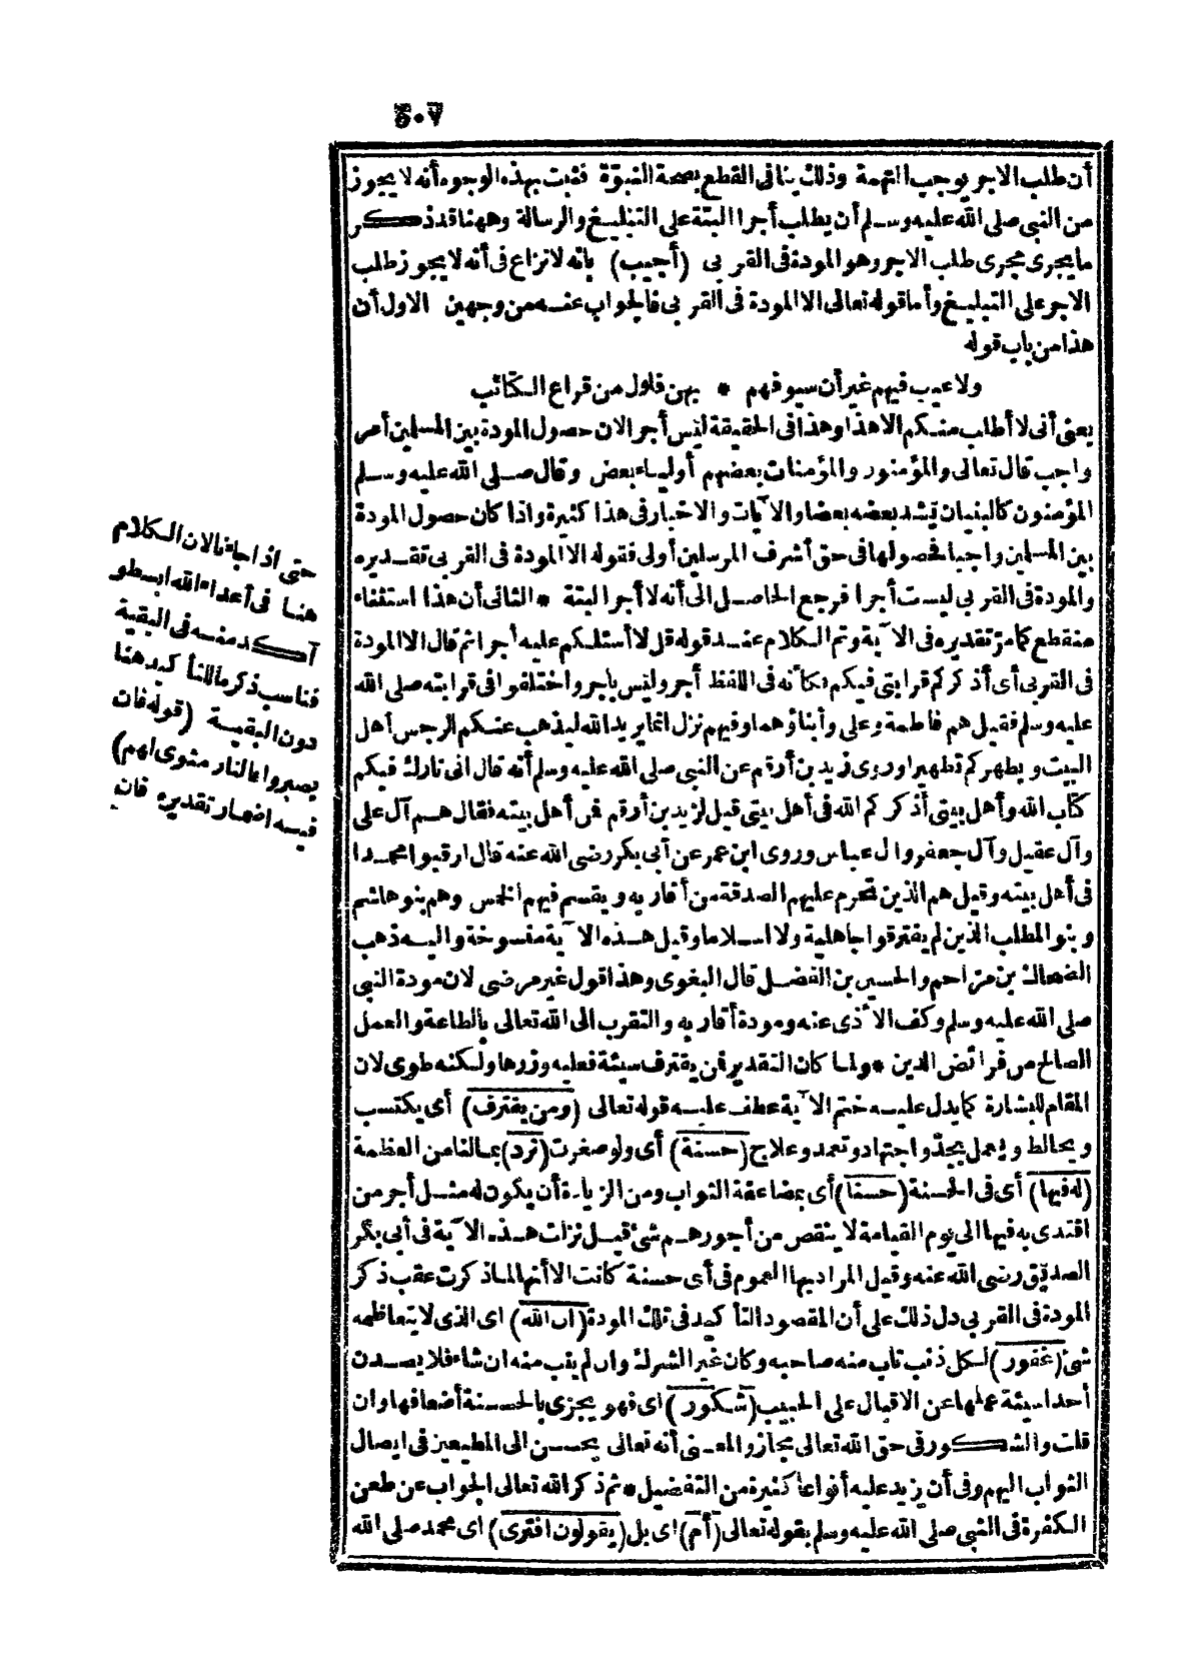 ٥٠٧
أن طلب الاجر يوجب التهمة وذلك ينافى القطع بصحة النبوّة فثبت بهذه الوجوه أنه لا يجوز
من النبى صلى الله عليه وسلم أن يطلب أجرا البتة على التبليغ والرسالة وههنا قد ذكر
ما يجرى مجرى طلب الاجر وهو المودة فى القربى (أجيب) بانه لا نزاع فى أنه لا يجوز طلب
الاجر على التبليغ وأما قوله تعالى الا المودة فى القربى فالجواب عنه من وجهين الاول أن
هذا من باب قوله
ولا عيب فيهم غير أن سيوفهم * بهن فلول من قراع الكتائب
يعنى أنى لا أطلب منكم الا هذا وهذا فى الحقيقة ليس أجر الان حصول المودة بين المسلمين أمر
واجب قال تعالى والمؤمنون والمؤمنات بعضهم أولياء بعض وقال صلى الله عليه وسلم
المؤمنون كالبنيان يشد بعضه بعضا والآيات والاخبار فى هذا كثيرة واذا كان حصول المودة
بين المسلمين واجبا فحصولها فى حق أشرف المرسلين أولى فقوله الا المودة فى القربى تقديره
والمودة فى القربى ليست أجرا فرجع الحاصل الى أنه لا أجر البتة * الثانى أن هذا استثناء
منقطع كما مرّ تقديره فى الآية وتم الكلام عند قوله قل لا أسئلكم عليه أجرا ثم قال الا المودة
فى القربى أى أذكركم قرابتى فيكم فكأنه فى اللفظ أجر وليس باجر واختلفوا فى قرابته صلى الله
عليه وسلم فقيل هم فاطمة وعلى وأبناؤهما وفيهم نزل انما يريد الله ليذهب عنكم الرجس أهل
البيت ويطهركم تطهيرا وروى زيد بن أرقم عن النبى صلى الله عليه وسلم أنه قال انى تارك فيكم
كتاب الله وأهل بيتى أذكركم الله فى أهل بيتى قيل لزيد بن أرقم فمن أهل بيته فقال هم آل على
وآل عقيل وآل جعفر وآل عباس وروى ابن عمر عن أبى بكر رضى الله عنه قال ارقبوا محمدا
فى أهل بيته وقيل هم الذين تحرم عليهم الصدقة من أقاربه ويقسم فيهم الخمس وهم بنو هاشم
وبنو المطلب الذين لم يفترقوا جاهلية ولا اسلاما وقيل هذه الآية منسوخة واليه ذهب
الضحاك بن مزاحم والحسين بن الفضل قال البغوى وهذا قول غير مرضى لان مودة النبى
صلى الله عليه وسلم وكف الأذى عنه ومودة أقاربه والتقرب الى الله تعالى بالطاعة والعمل
الصالح من فرائض الدين * ولما كان التقدير فمن يقترف سيئة فعليه وزرها ولكنه طوى لان
المقام للبشارة كما يدل عليه ختم الآية عطف عليه قوله تعالى (ومن يقترف) أى يكتسب
ويخالط ويعمل بجدّ واجتهاد وتعمد وعلاج (حسنة) أى ولو صغرت (نزد) بما لنا من العظمة
(له فيها) أى فى الحسنة (حسنا) أى بمضاعفة الثواب ومن الزيادة أن يكون له مثل أجر من
اقتدى به فيها الى يوم القيامة لا ينقص من أجورهم شئ قيل نزلت هذه الآية فى أبى بكر
الصديق رضى الله عنه وقيل المراد بها العموم فى أى حسنة كانت الا أنها لما ذكرت عقب ذكر
المودة فى القربى دل ذلك على أن المقصود التأكيد فى تلك المودة (ان الله) اى الذى لا يتعاظمه
شئ (غفور) لكل ذنب تاب منه صاحبه وكان غير الشرك وان لم يتب منه ان شاء فلا يصدن
أحدا سيئة عملها عن الاقبال على الحبيب (شكور) اى فهو يجزى بالحسنة أضعافها وان
قلت والشكور فى حق الله تعالى مجاز والمعنى أنه تعالى يحسن الى المطيعين فى ايصال
الثواب اليهم وفى أن يزيد عليه أنواعا كثيرة من التفضيل * ثم ذكر الله تعالى الجواب عن طعن
الكفرة فى النبى صلى الله عليه وسلم بقوله تعالى (أم) اى بل (يقولون افترى) اى محمد صلى الله
حتى اذا جاءنا لان الكلام
هنا فى أعداء الله ابسط و
آكد منه فى البقية
فناسب ذكر ما للتأكيد هنا
دون البقية (قوله فان
يصبروا فالنار مثوى لهم)
فيه اضمار تقديره فان